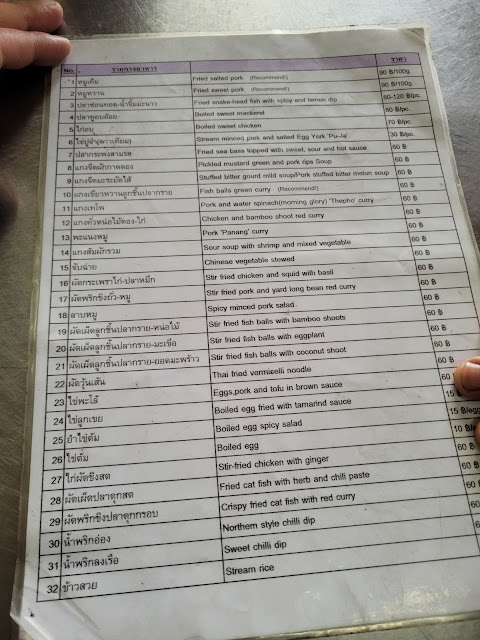 No. รายการอาหาร ราคา
1 หมูเค็ม Fried salted pork (Recommend!) 90 ฿/100g.
2 หมูหวาน Fried sweet pork (Recommend!) 90 ฿/100g.
3 ปลาช่อนทอด-น้ำจิ้มมะนาว Fried snake-head fish with spicy and lemon dip 80-120 ฿/pc.
4 ปลาทูอบอ้อย Boiled sweet mackerel 80 ฿/pc.
5 ไก่อบ Boiled sweet chicken 70 ฿/pc.
6 ไข่ปูจ๋า(ดาวเทียม) Stream minced pork and salted Egg York 'Pu-Ja' 30 ฿/pc.
7 ปลากระพงสามรส Fried sea bass topped with sweet, sour and hot sauce 60 ฿
8 แกงจืดผักกาดดอง Pickled mustard green and pork rips Soup 60 ฿
9 แกงจืดมะระยัดไส้ Stuffed bitter gourd mild soup/Pork stuffed bitter melon soup 60 ฿
10 แกงเขียวหวานลูกชิ้นปลากราย Fish balls green curry (Recommend!) 60 ฿
11 แกงเทโพ Pork and water spinach(morning glory) 'Thepho' curry 60 ฿
12 แกงคั่วหน่อไม้ดอง-ไก่ Chicken and bamboo shoot red curry 60 ฿
13 พะแนงหมู Pork 'Panang' curry 60 ฿
14 แกงส้มผักรวม Sour soup with shrimp and mixed vegetable 60 ฿
15 จับฉ่าย Chinese vegetable stewed 60 ฿
16 ผัดกระเพราไก่-ปลาหมึก Stir fried chicken and squid with basil 60 ฿
17 ผัดพริกขิงถั่ว-หมู Stir fried pork and yard long bean red curry 60 ฿
18 ลาบหมู Spicy minced pork salad 60 ฿
19 ผัดเผ็ดลูกชิ้นปลากราย-หน่อไม้ Stir fried fish balls with bamboo shoots 60 ฿
20 ผัดเผ็ดลูกชิ้นปลากราย-มะเขือ Stir fried fish balls with eggplant 60 ฿
21 ผัดเผ็ดลูกชิ้นปลากราย-ยอดมะพร้าว Stir fried fish balls with coconut shoot 60 ฿
22 ผัดวุ้นเส้น Thai fried vermicelli noodle 60
23 ไข่พะโล้ Eggs,pork and tofu in brown sauce 60
24 ไข่ลูกเขย Boiled egg fried with tamarind sauce 15 ฿
25 ยำไข่ต้ม Boiled egg spicy salad 15 ฿/egg
26 ไข่ต้ม Boiled egg 10 ฿/
27 ไก่ผัดขิงสด Stir-fried chicken with ginger 60 ฿
28 ผัดเผ็ดปลาดุกสด Fried cat fish with herb and chili paste 60
29 ผัดพริกขิงปลาดุกกรอบ Crispy fried cat fish with red curry 60
30 น้ำพริกอ่อง Northern style chilli dip
31 น้ำพริกลงเรือ Sweet chilli dip
32 ข้าวสวย Stream rice